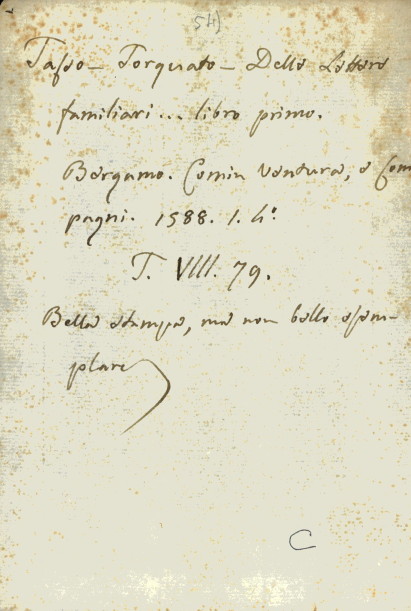 54)
Tasso – Torquato – Delle Lettere
familiari... libro primo.
Bergamo. Comin Ventura, e Com
pagni. 1588. 1. 4°.
T. VIII. 79.
Bella stampa, ma non bello esem-
plare
C